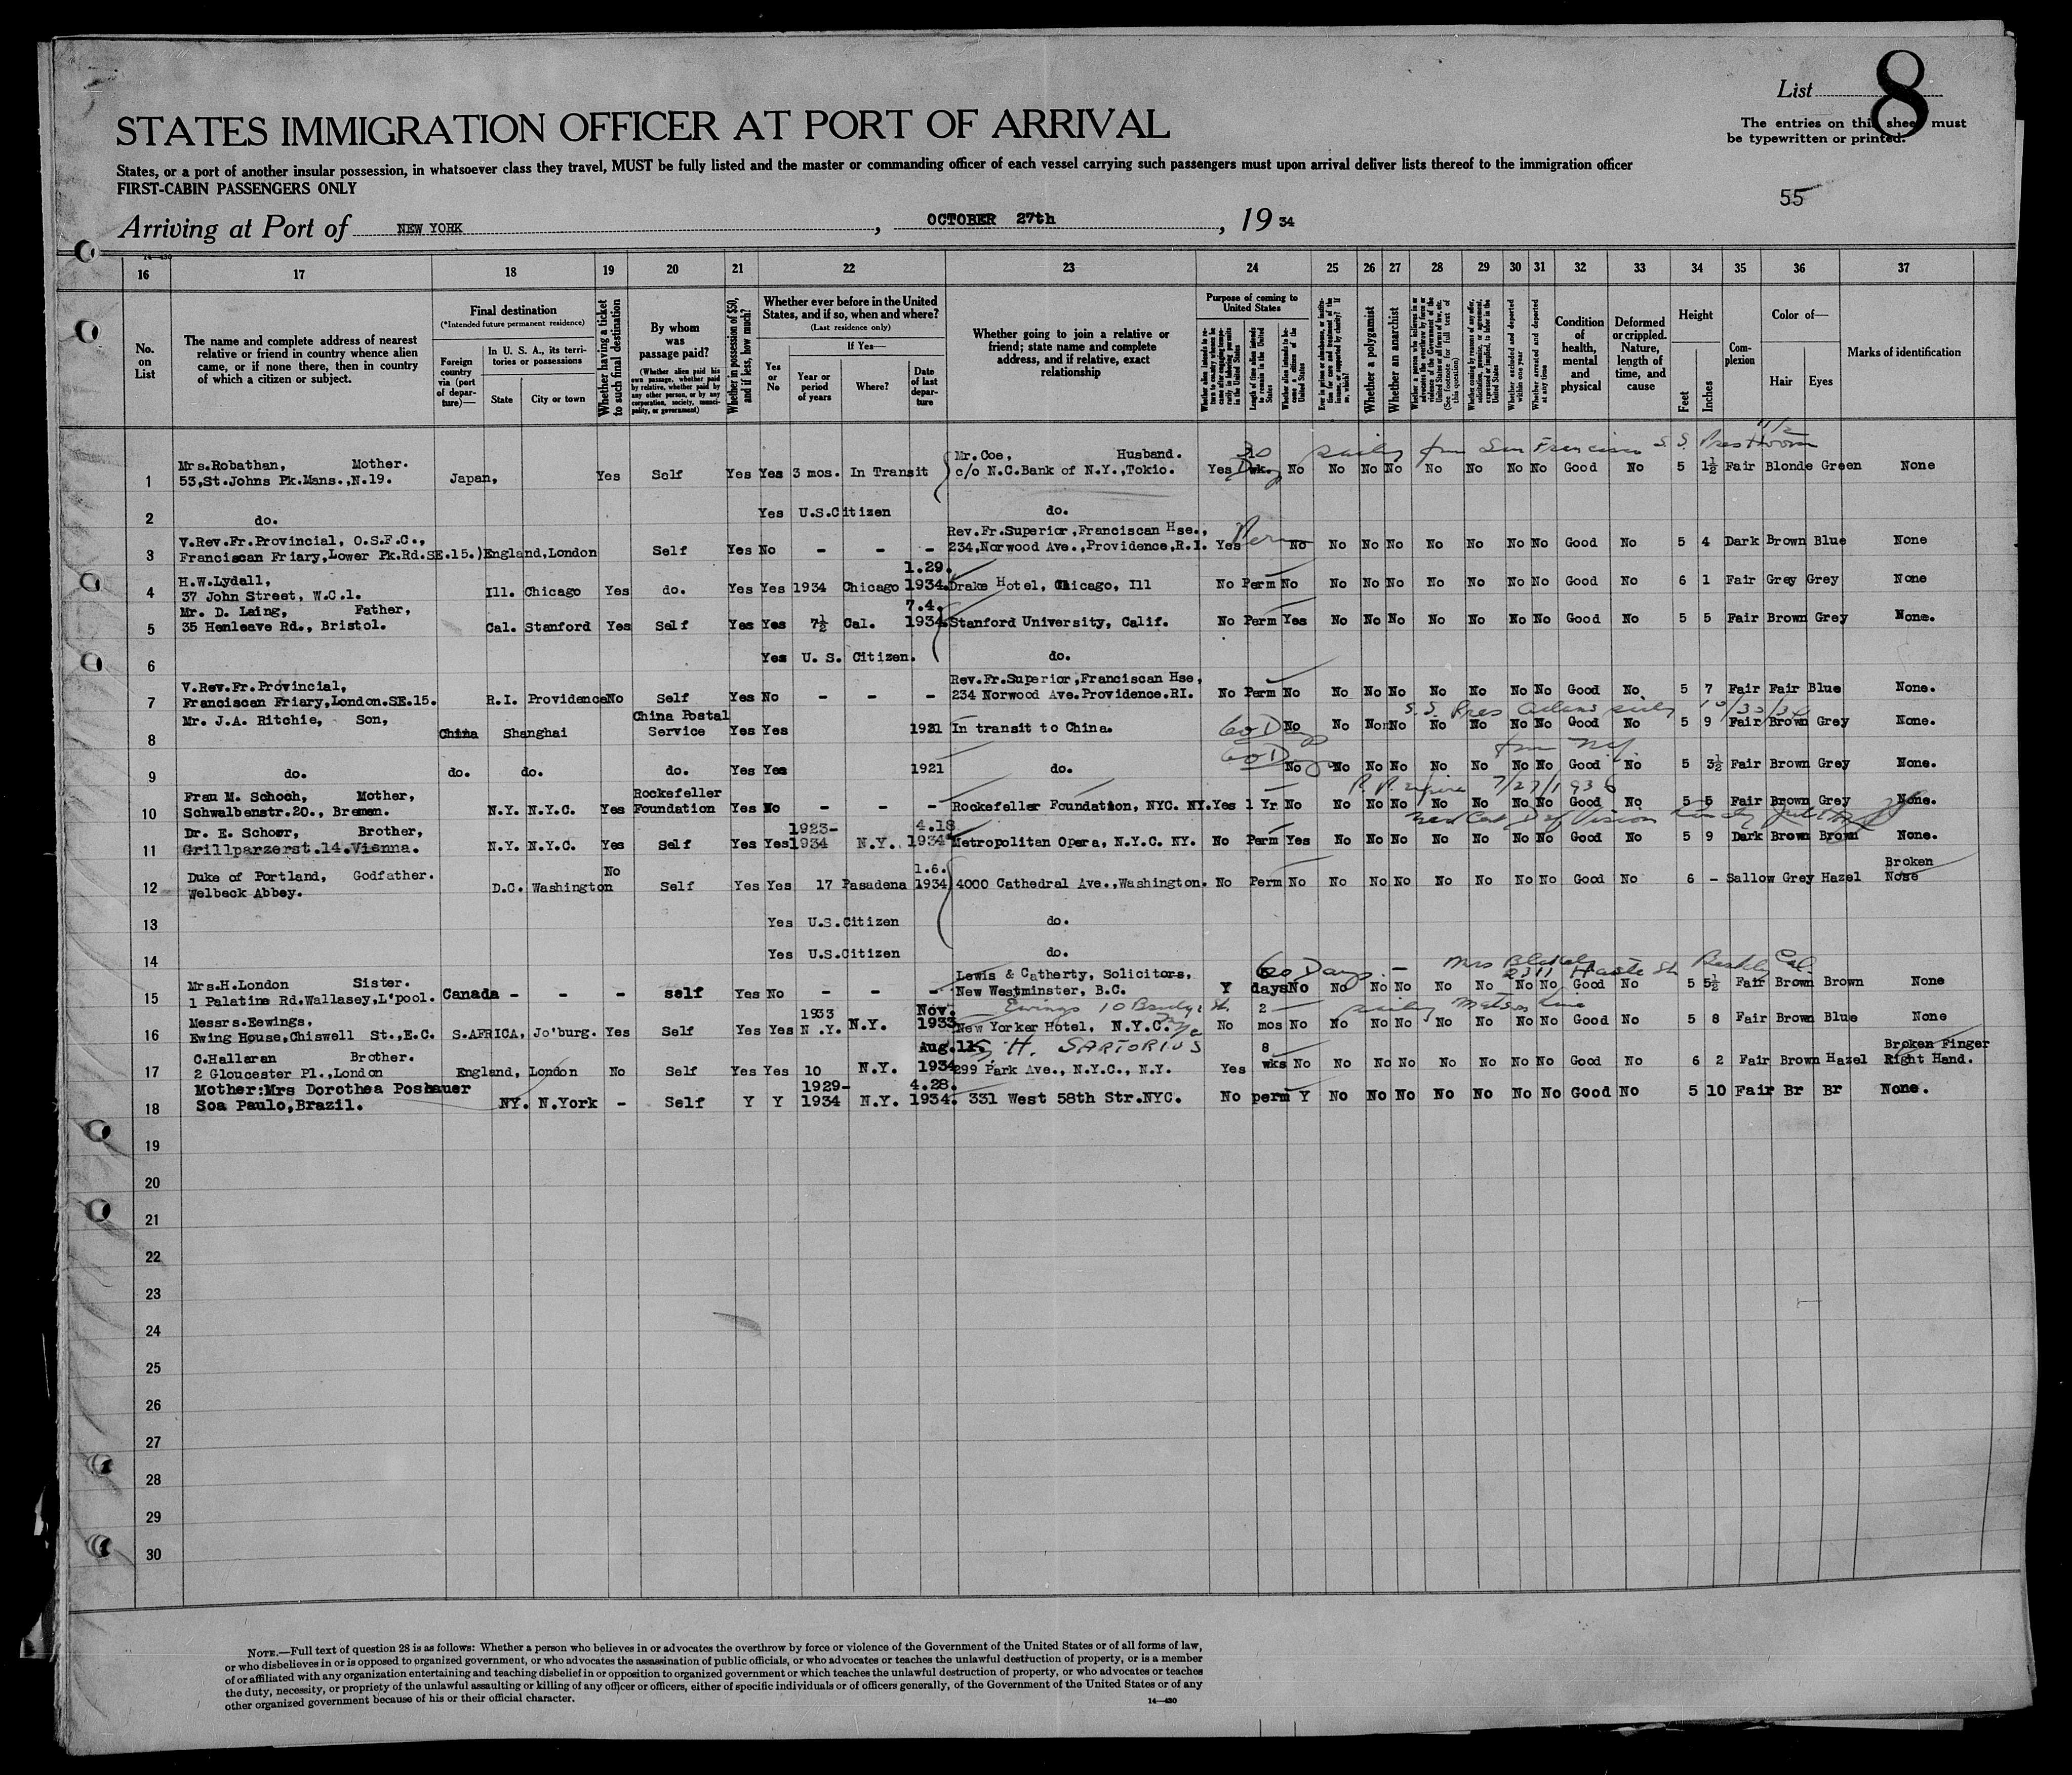 List 8
The entries on this sheet must
be typewritten or printed.
STATES IMMIGRATION OFFICER AT PORT OF ARRIVAL
States, or a port of another insular possession, in whatsoever class they travel, MUST be fully listed and the master or commanding officer of each vessel carrying such passengers must upon arrival deliver lists thereof to the immigration officer
FIRST-CABIN PASSENGERS ONLY
55
Arriving at Port of NEW YORK, OCTOBER 27th, 19 34
14—430
16 17 18 19 20 21 22 23 24 25 26 27 28 29 30 31 32 33 34 35 36 37
No. on List
The name and complete address of nearest relative or friend in country whence alien came, or if none there, then in country of which a citizen or subject.
Final destination
(*Intended future permanent residence)
Foreign country via (port of departure)—
In U. S. A., its territories or possessions
State
City or town
Whether having a ticket to such final destination
By whom was passage paid?
(Whether alien paid his own passage, whether paid by relative, whether paid by any other person, or by any corporation, society, municipality, or government)
Whether in possession of $50, and if less, how much?
Whether ever before in the United States, and if so, when and where?
(Last residence only)
Yes or No
If Yes—
Year or period of years
Where?
Date of last departure
Whether going to join a relative or friend; state name and complete address, and if relative, exact relationship
Purpose of coming to United States
Whether a polygamist
Whether an anarchist
(See footnote for full text of this question)
Whether excluded and deported within one year
Whether arrested and deported at any time
Condition of health, mental and physical
Deformed or crippled. Nature, length of time, and cause
Height
Feet
Inches
Complexion
Color of—
Hair
Eyes
Marks of identification
30 sailing from San Francisco S.S. 11/2
1 Mrs.Robathan, Mother. Mr.Coe, Husband.
53,St.Johns Pk.Mans.,N.19. Japan, Yes Self Yes Yes 3 mos. In Transit c/o N.C.Bank of N.Y.,Tokio. Yes wk. No No No No No No No No Good No 5 1½ Fair Blonde Green None
2 do. Yes U.S.Citizen do.
3 V.Rev.Fr.Provincial, O.S.F.C., Rev.Fr.Superior,Franciscan Hse.,
Franciscan Friary,Lower Pk.Rd.SE.15.)England,London Self Yes No - - - 234,Norwood Ave.,Providence,R.I. Yes Perm No No No No No No No No Good No 5 4 Dark Brown Blue None
4 H.W.Lydall, 1.29.
37 John Street, W.C.1. Ill. Chicago Yes do. Yes Yes 1934 Chicago 1934. Drake Hotel, Chicago, Ill No Perm No No No No No No No No Good No 6 1 Fair Grey Grey None
5 Mr. D. Laing, Father, 7.4.
35 Henleave Rd., Bristol. Cal. Stanford Yes Self Yes Yes 7½ Cal. 1934. Stanford University, Calif. No Perm Yes No No No No No No No Good No 5 5 Fair Brown Grey None.
6 Yes U. S. Citizen. do.
7 V.Rev.Fr.Provincial, Rev.Fr.Superior,Franciscan Hse,
Franciscan Friary,London.SE.15. R.I. Providence No Self Yes No - - - 234 Norwood Ave.Providence.RI. No Perm No No No No No No No No Good No. 5 7 Fair Fair Blue None.
S.S. Pres Adams sailg 10/30/34
8 Mr. J.A. Ritchie, Son, China Postal
China Shanghai Service Yes Yes 1921 In transit to China. 60 Days No No No No No No No No Good No 5 9 Fair Brown Grey None.
from N.Y.
9 do. do. do. do. Yes Yes 1921 do. 60 Days No No No No No No No No Good No 5 3½ Fair Brown Grey None.
R.P. expire 7/27/1936
10 Frau M. Schoch, Mother, Rockefeller
Schwalbenstr.20., Bremen. N.Y. N.Y.C. Yes Foundation Yes No - - - Rockefeller Foundation, NYC. NY. Yes 1 Yr No No No No No No No No Good No 5 5 Fair Brown Grey None.
11 Dr. E. Schorr, Brother, 1923- 4.18
Grillparzerst.14.Vienna. N.Y. N.Y.C. Yes Self Yes Yes 1934 N.Y. 1934 Metropolitan Opera, N.Y.C. NY. No Perm Yes No No No No No No No Good No 5 9 Dark Brown Brown None.
12 Duke of Portland, Godfather. No 1.6. Broken
Welbeck Abbey. D.C. Washington Self Yes Yes 17 Pasadena 1934 4000 Cathedral Ave.,Washington. No Perm No No No No No No No No Good No 6 - Sallow Grey Hazel Nose
13 Yes U.S.Citizen do.
14 Yes U.S.Citizen do.
60 Days - Mrs Blakely 2311 Haste St Berkly Cal.
15 Mrs.H.London Sister. Lewis & Catherty, Solicitors,
1 Palatine Rd.Wallasey,L'pool. Canada - - - self Yes No - - - New Westminster, B.C. Y days No No No No No No No No Good No 5 5½ Fair Brown Brown None
sailing Matson Line
16 Messrs.Eewings, 1933 Nov. 2
Ewing House,Chiswell St.,E.C. S.AFRICA, Jo'burg. Yes Self Yes Yes N.Y. N.Y. 1933 New Yorker Hotel, N.Y.C. No mos No No No No No No No No Good No 5 8 Fair Brown Blue None
17 C.Hallaran Brother. Aug.11. H. SARTORIUS 8 Broken Finger
2 Gloucester Pl.,London England, London No Self Yes Yes 10 N.Y. 1934 299 Park Ave., N.Y.C., N.Y. Yes wks No No No No No No No No Good No 6 2 Fair Brown Hazel Right Hand.
18 Mother:Mrs Dorothea Poshauer 1929- 4.28.
Soa Paulo,Brazil. NY. N.York - Self Y Y 1934 N.Y. 1934. 331 West 58th Str.NYC. No perm Y No No No No No No No Good No 5 10 Fair Br Br None.
19
20
21
22
23
24
25
26
27
28
29
30
NOTE.—Full text of question 28 is as follows: Whether a person who believes in or advocates the overthrow by force or violence of the Government of the United States or of all forms of law,
or who disbelieves in or is opposed to organized government, or who advocates the assassination of public officials, or who advocates or teaches the unlawful destruction of property, or is a member
of or affiliated with any organization entertaining and teaching disbelief in or opposition to organized government or which teaches the unlawful destruction of property, or who advocates or teaches
the duty, necessity, or propriety of the unlawful assaulting or killing of any officer or officers, either of specific individuals or of officers generally, of the Government of the United States or of any
other organized government because of his or their official character.
14—430